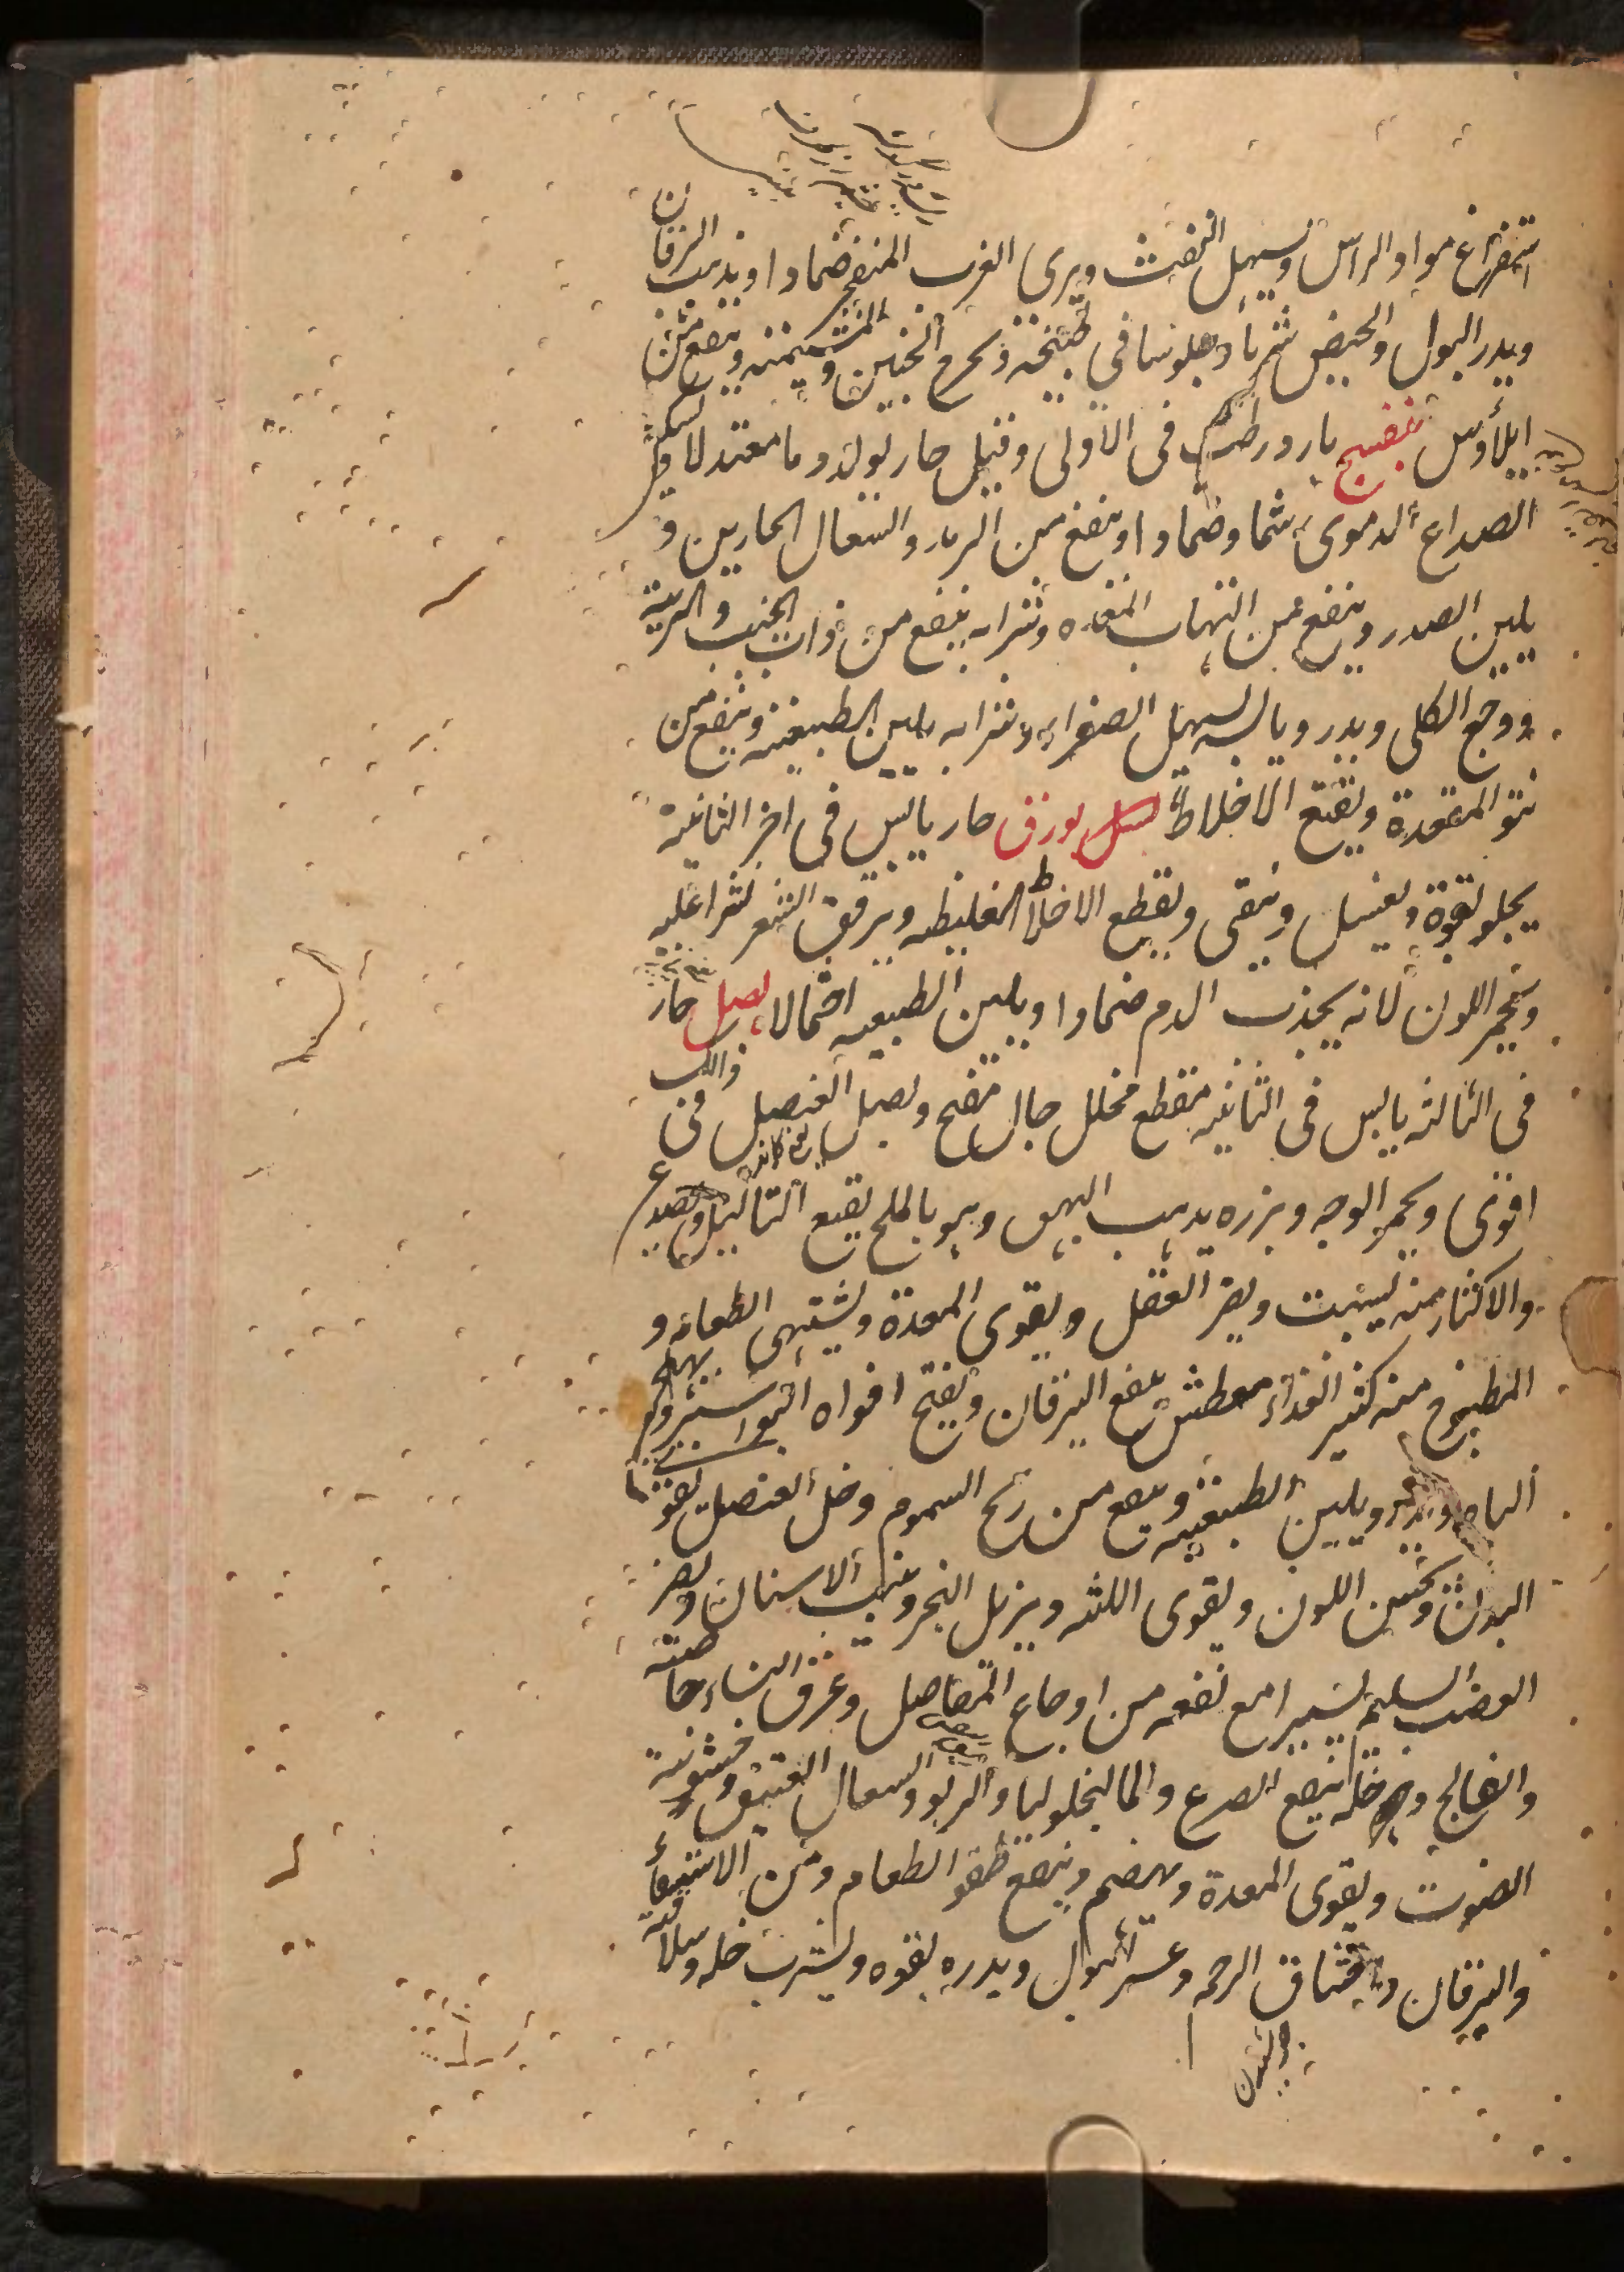 استفراغ مواد الراس ويسهل النفث ويبرى الغرب المنفجر ضمادا ويذهب اليرقان
ويدر البول والحيض شربا وجلوسا فى طبيخه ويخرج الجنين والمشيمة وينفع من
ايلاوس بنفسج بارد رطب فى الاولى وقيل حار يولد دما معتدلا ويسكن
الصداع الدموى شما وضمادا وينفع من الرمد والسعال الحارين و
يلين الصدر وينفع من التهاب المعده وشرابه ينفع من ذات الجنب والرية
ووجع الكلى ويدر ويابسه يسهل الصفراء وشرابه يلين الطبيعة وينفع من
نتو المقعدة ويقلع الاخلاط بورق حار يابس فى اخر الثانية
يجلو بقوة ويغسل وينقى ويقطع الاخلاط الغليظه ويرقق الشعر نثرا عليه
ويحمر اللون لانه يجذب الدم ضمادا ويلين الطبيعه احتمالا بصل حار
فى الثالثه يابس فى الثانيه مقطع محلل جال مفتح وبصل العنصل فى ذالك
اقوى ويحمر الوجه وبزره يذهب البهق وهو بالملح يقلع الثاليل ويصدع
والاكثار منه يسبت ويضر العقل ويقوى المعدة ويشهى الطعام و
المطبوخ منه كثير الغذاء معطش ينفع اليرقان ويفتح افواه البواسير ويهيج
الباه ويدر ويلين الطبيعيه وينفع من ريح السموم وخل العنصل يقوى
البدن ويحسن اللون ويقوى اللثه ويزيل البخر ويثبت الاسنان ويضر
العصب السليم يسيرا مع نفعه من اوجاع المفاصل وعرق النساء خاصته
والفالج وخله ينفع الصرع والماليخوليا والربو والسعال العتيق وخشونة
الصوت ويقوى المعدة ويهضم وينفع طفو الطعام ومن الاستسقاء
واليرقان واختناق الرحم وعسر البول ويدره بقوه ويشرب خله وسلاقته